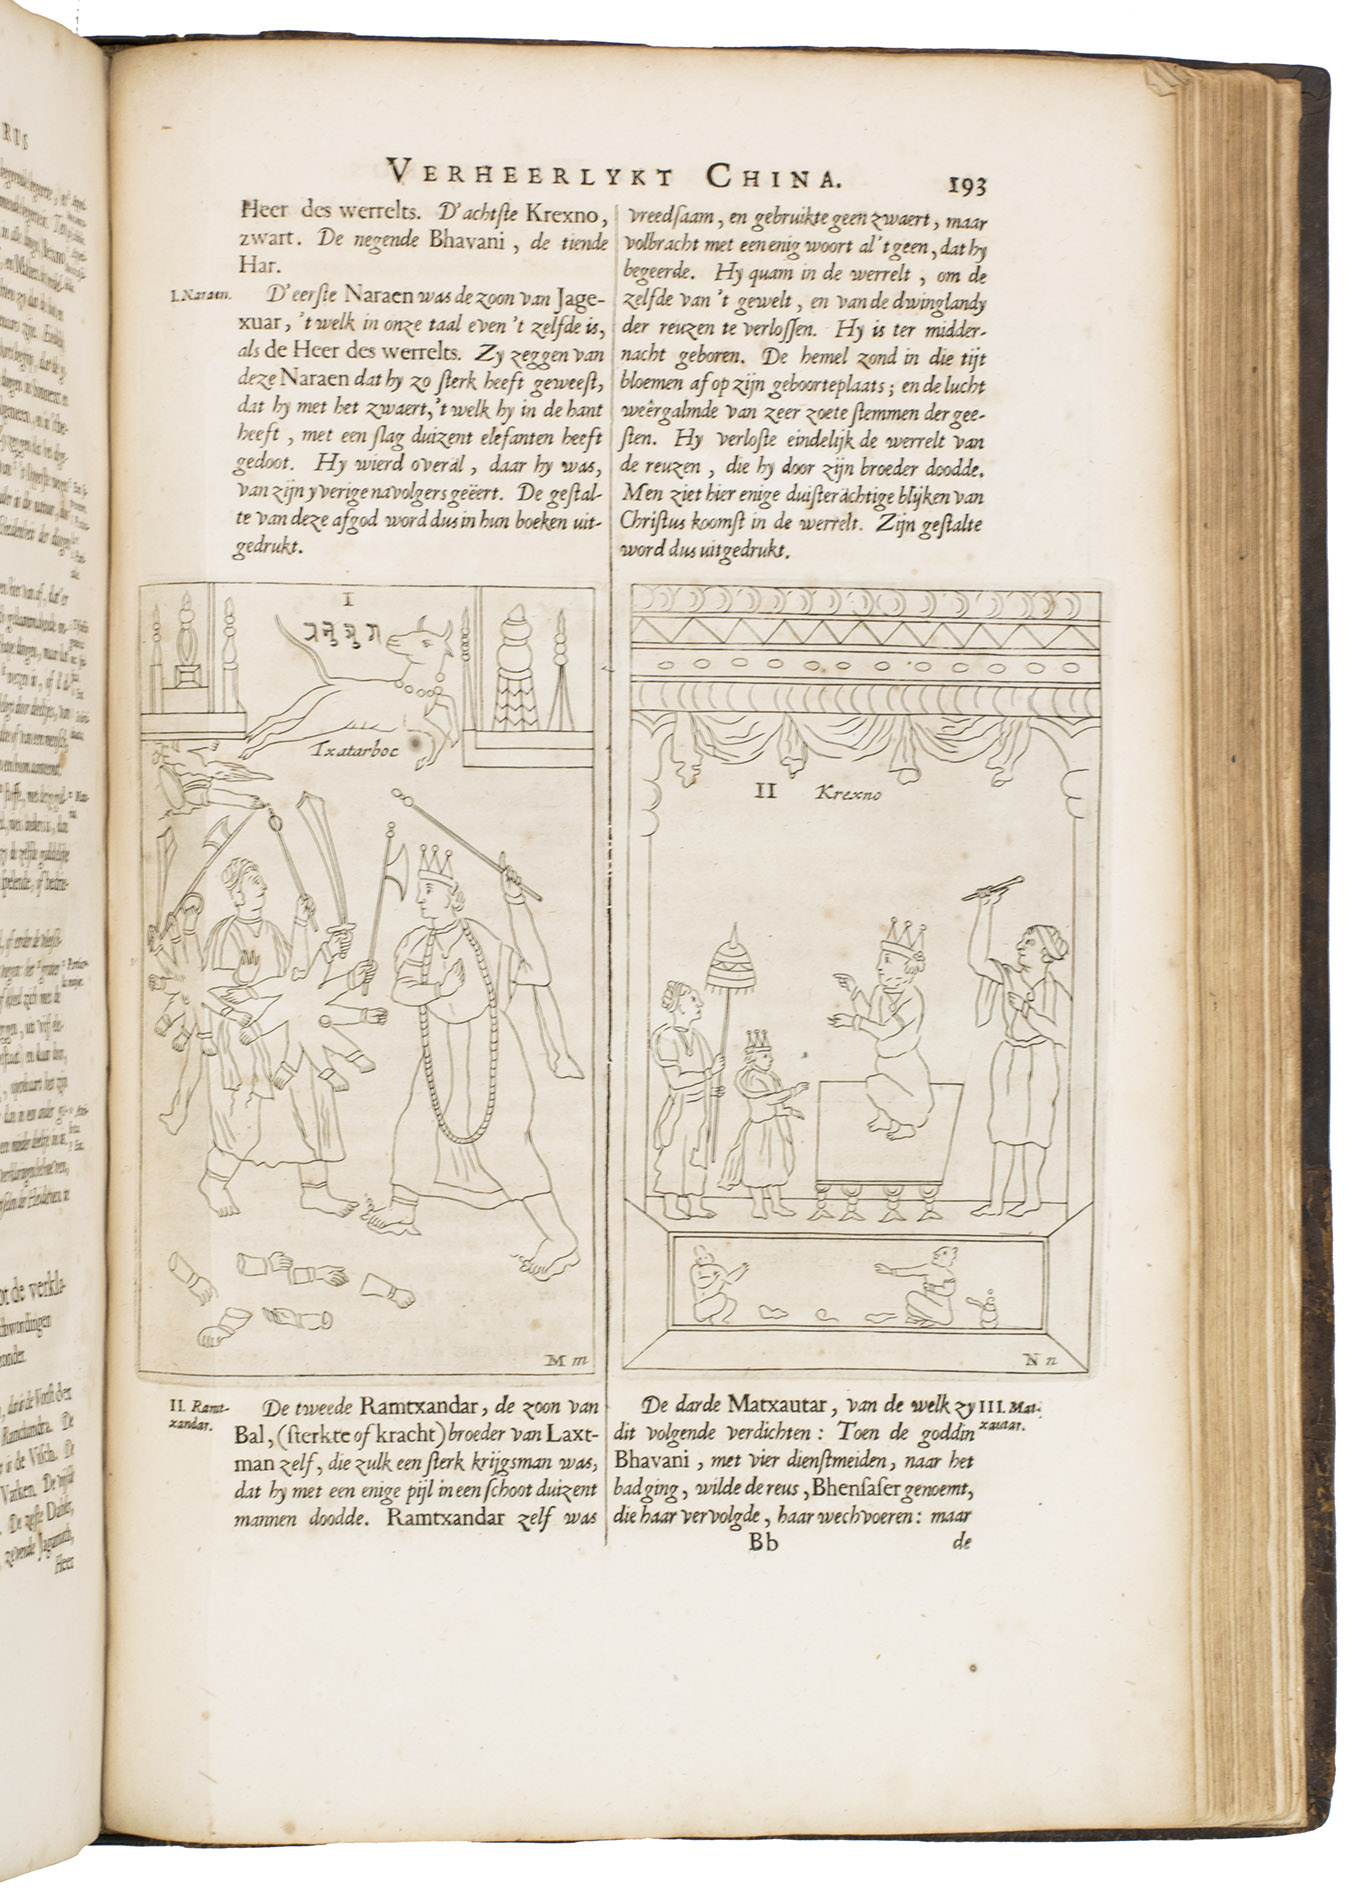 VERHEERLYKT CHINA. 193
Heer des werrelts. D'achtste Krexno,
zwart. De negende Bhavani, de tiende
Har.
I. Naraen.
D'eerste Naraen was de zoon van Jage-
xuar, 't welk in onze taal even 't zelfde is,
als de Heer des werrelts. Zy zeggen van
deze Naraen dat hy zo sterk heeft geweest,
dat hy met het zwaert, 't welk hy in de hant
heeft, met een slag duizent elefanten heeft
gedoot. Hy wierd overal, daar hy was,
van zijn yverige navolgers geëert. De gestal-
te van deze afgod word dus in hun boeken uit-
gedrukt.
vreedsaam, en gebruikte geen zwaert, maar
volbracht met een enig woort al 't geen, dat hy
begeerde. Hy quam in de werrelt, om de
zelfde van 't gewelt, en van de dwinglandy
der reuzen te verlossen. Hy is ter midder-
nacht geboren. De hemel zond in die tijt
bloemen af op zijn geboorteplaats; en de lucht
weêrgalmde van zeer zoete stemmen der gee-
sten. Hy verloste eindelijk de werrelt van
de reuzen, die hy door zijn broeder doodde.
Men ziet hier enige duisterachtige blijken van
Christus koomst in de werrelt. Zijn gestalte
word dus uitgedrukt.
I
Txatarboc
M m
II Krexno
N n
II. Ram-
txandar.
De tweede Ramtxandar, de zoon van
Bal, (sterkte of kracht) broeder van Laxt-
man zelf, die zulk een sterk krijgsman was,
dat hy met een enige pijl in een schoot duizent
mannen doodde. Ramtxandar zelf was
De darde Matxautar, van de welk zy
dit volgende verdichten: Toen de goddin
Bhavani, met vier dienstmeiden, naar het
bad ging, wilde de reus, Bhensaser genoemt,
die haar vervolgde, haar wechvoeren: maar
III. Mat-
xautar.
Bb de